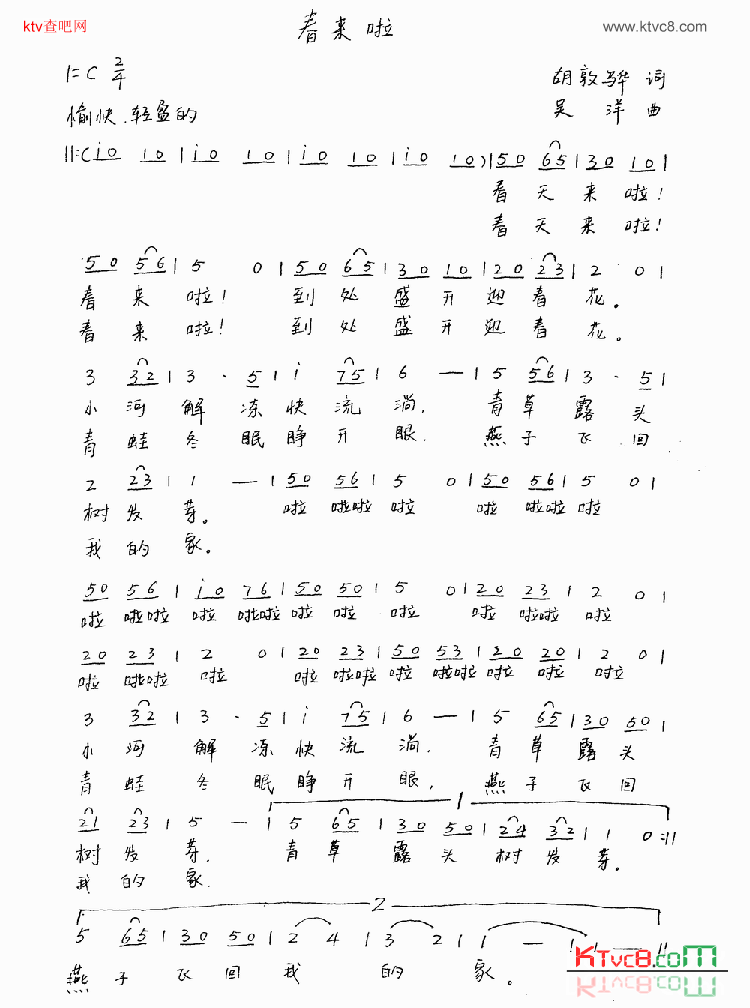 ktv查吧网
www.ktvc8.com
春来啦
1=C 2/4
胡敦骅 词
愉快、轻盈的
吴洋 曲
||:(i0 10|i0 10|i0 10|i0 10)|50 65|30 10|
春天来啦!
春天来啦!
50 56|5 0|50 65|30 10|20 23|2 0|
春来啦! 到处盛开迎春花。
春来啦! 到处盛开迎春花。
3 32|3 · 5|i 75|6 —|5 56|3 · 5|
小河解冻快流淌, 青草露头
青蛙冬眠睁开眼, 燕子飞回
2 23|1 —|50 56|5 0|50 56|5 0|
树发芽。 啦 啦啦 啦 啦 啦啦 啦
我的家。
50 56|i0 76|50 50|5 0|20 23|2 0|
啦 啦啦 啦 啦啦 啦 啦 啦 啦 啦啦 啦
20 23|2 0|20 23|50 53|20 20|2 0|
啦 啦啦 啦 啦 啦啦 啦 啦啦 啦 啦 啦
3 32|3 · 5|i 75|6 —|5 65|30 50|
小河解冻快流淌, 青草露头
青蛙冬眠睁开眼, 燕子飞回
1
21 23|5 —|5 65|30 50|24 32|1 0:||
树发芽, 青草露头树发芽。
我的家
2
5 65|30 50|2 4|3 2|1 —|1 —||
燕子飞回我的家。
KTvc8.com